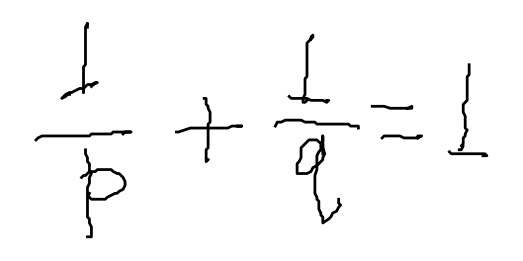 1/p + 1/q = 1